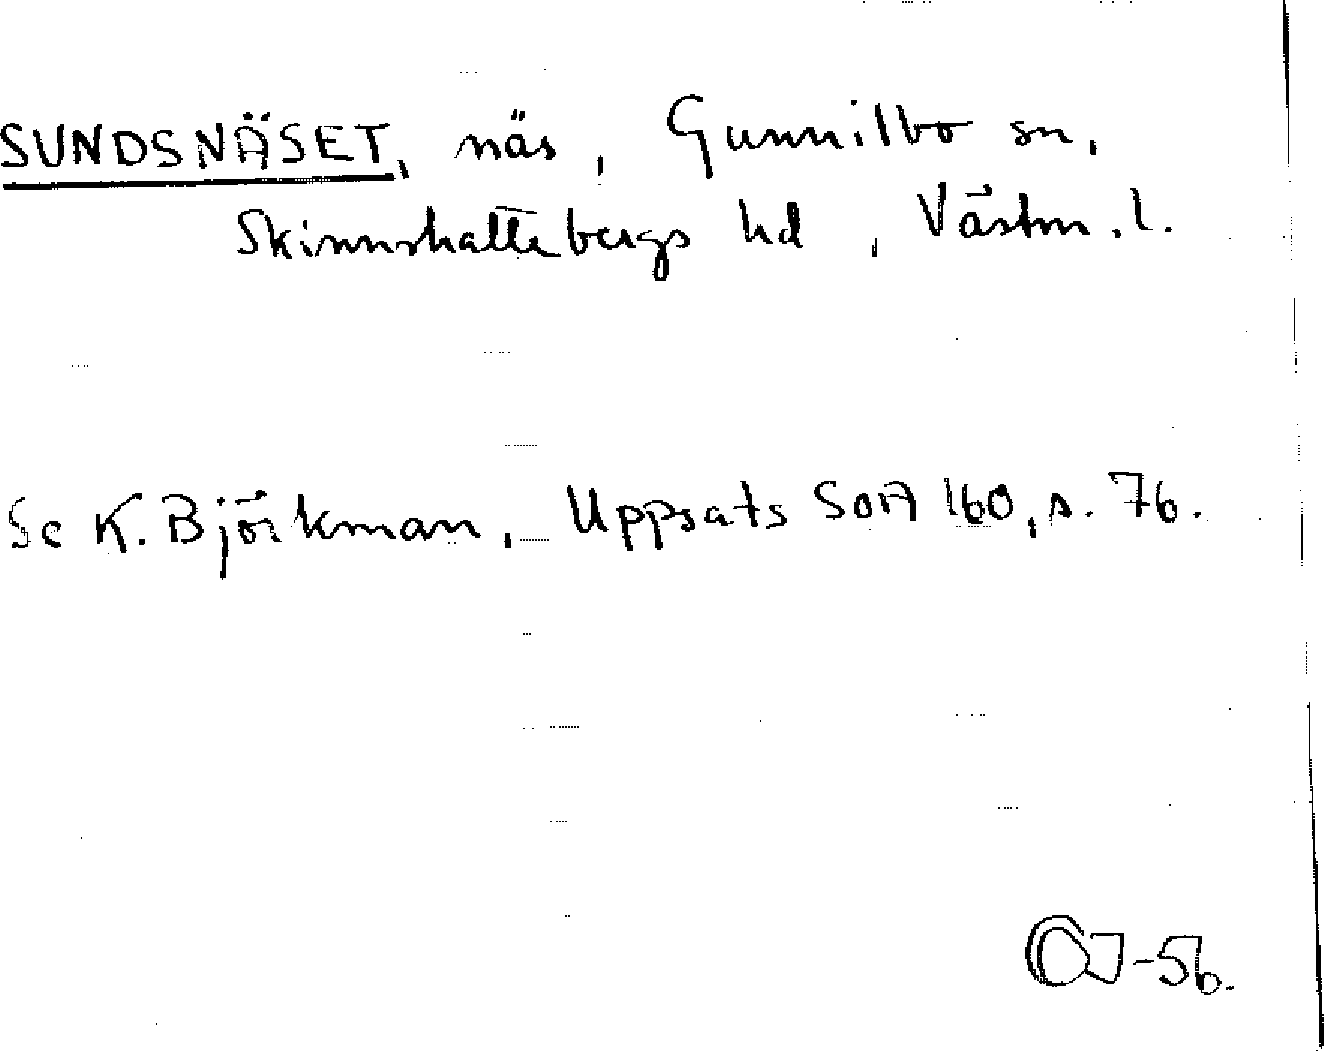 SUNDSNÄSET, näs, Gunnilbo sn,
Skinnskattebergs hd, Västm. l.
Se K. Björkman, Uppsats SOA 160, s. 76.
-56.